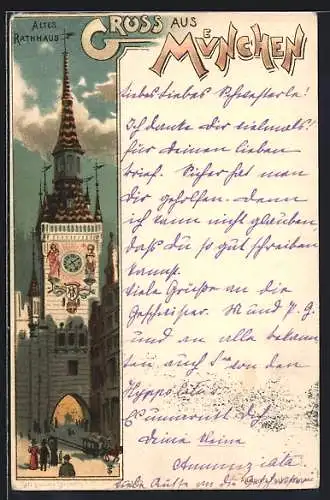 Altes
Rathhaus
Gruss aus
Muenchen
Liebes liebes Schwesterle!
Ich danke Dir vielmals
für Deinen lieben
Brief. Sicher hat man
Dir geholfen. Denn
ich kann nicht glauben,
daß Du so gut schreiben
kannst.
Viele Grüße an die
Geschwister. M. und P. G.
und an alle bekann
ten, auch von
Es umarmt Dich
Deine kleine
Annunziata